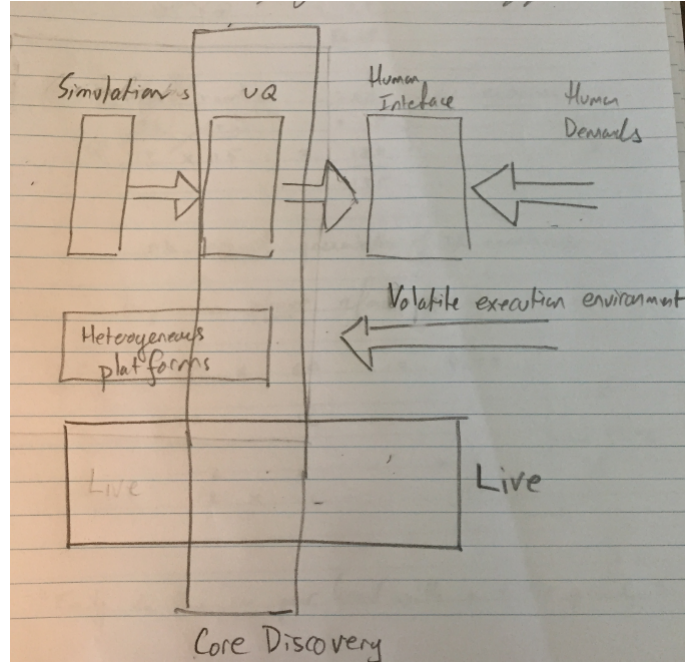 Simulations
UQ
Human
Interface
Human
Demands
Volatile execution environment
Heterogeneous
platforms
Live
Live
Core Discovery